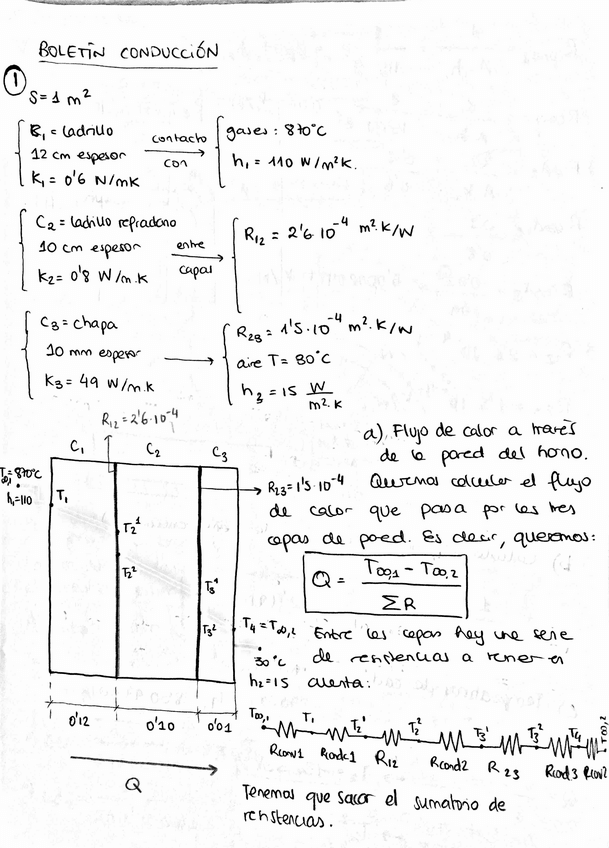 BOLETÍN CONDUCCIÓN
1
S = 1 m²
C₁ = ladrillo
12 cm espesor
K₁ = 0'6 N/mK
contacto con
gases: 870°C
h₁ = 110 W/m²K.
C₂ = ladrillo refractario
10 cm espesor
K₂ = 0'8 W/m.K
entre capas
R₁₂ = 2'6 10⁻⁴ m².K/W
C₃ = chapa
10 mm espesor
K₃ = 49 W/m.K
R₂₃ = 1'5·10⁻⁴ m².K/W
aire T = 30°C
h₂ = 15 W/m².K
R₁₂ = 2'6·10⁻⁴
C₁ C₂ C₃
T∞,1 = 870°C
h₁ = 110
T₁
T₂¹
T₂²
T₃¹
T₃²
R₂₃ = 1'5·10⁻⁴
T₄ = T∞,2
30°C
h₂ = 15
0'12 0'10 0'01
Q
a) Flujo de calor a través
de la pared del horno.
Queremos calcular el flujo
de calor que pasa por las tres
capas de pared. Es decir, queremos:
Q = (T∞,1 - T∞,2) / ΣR
Entre las capas hay una serie
de resistencias a tener en
cuenta:
T∞,1 T₁ T₂¹ T₂² T₃¹ T₃² T₄ T∞,2
Rconv1 Rcond1 R₁₂ Rcond2 R₂₃ Rcond3 Rconv2
Tenemos que sacar el sumatorio de
resistencias.